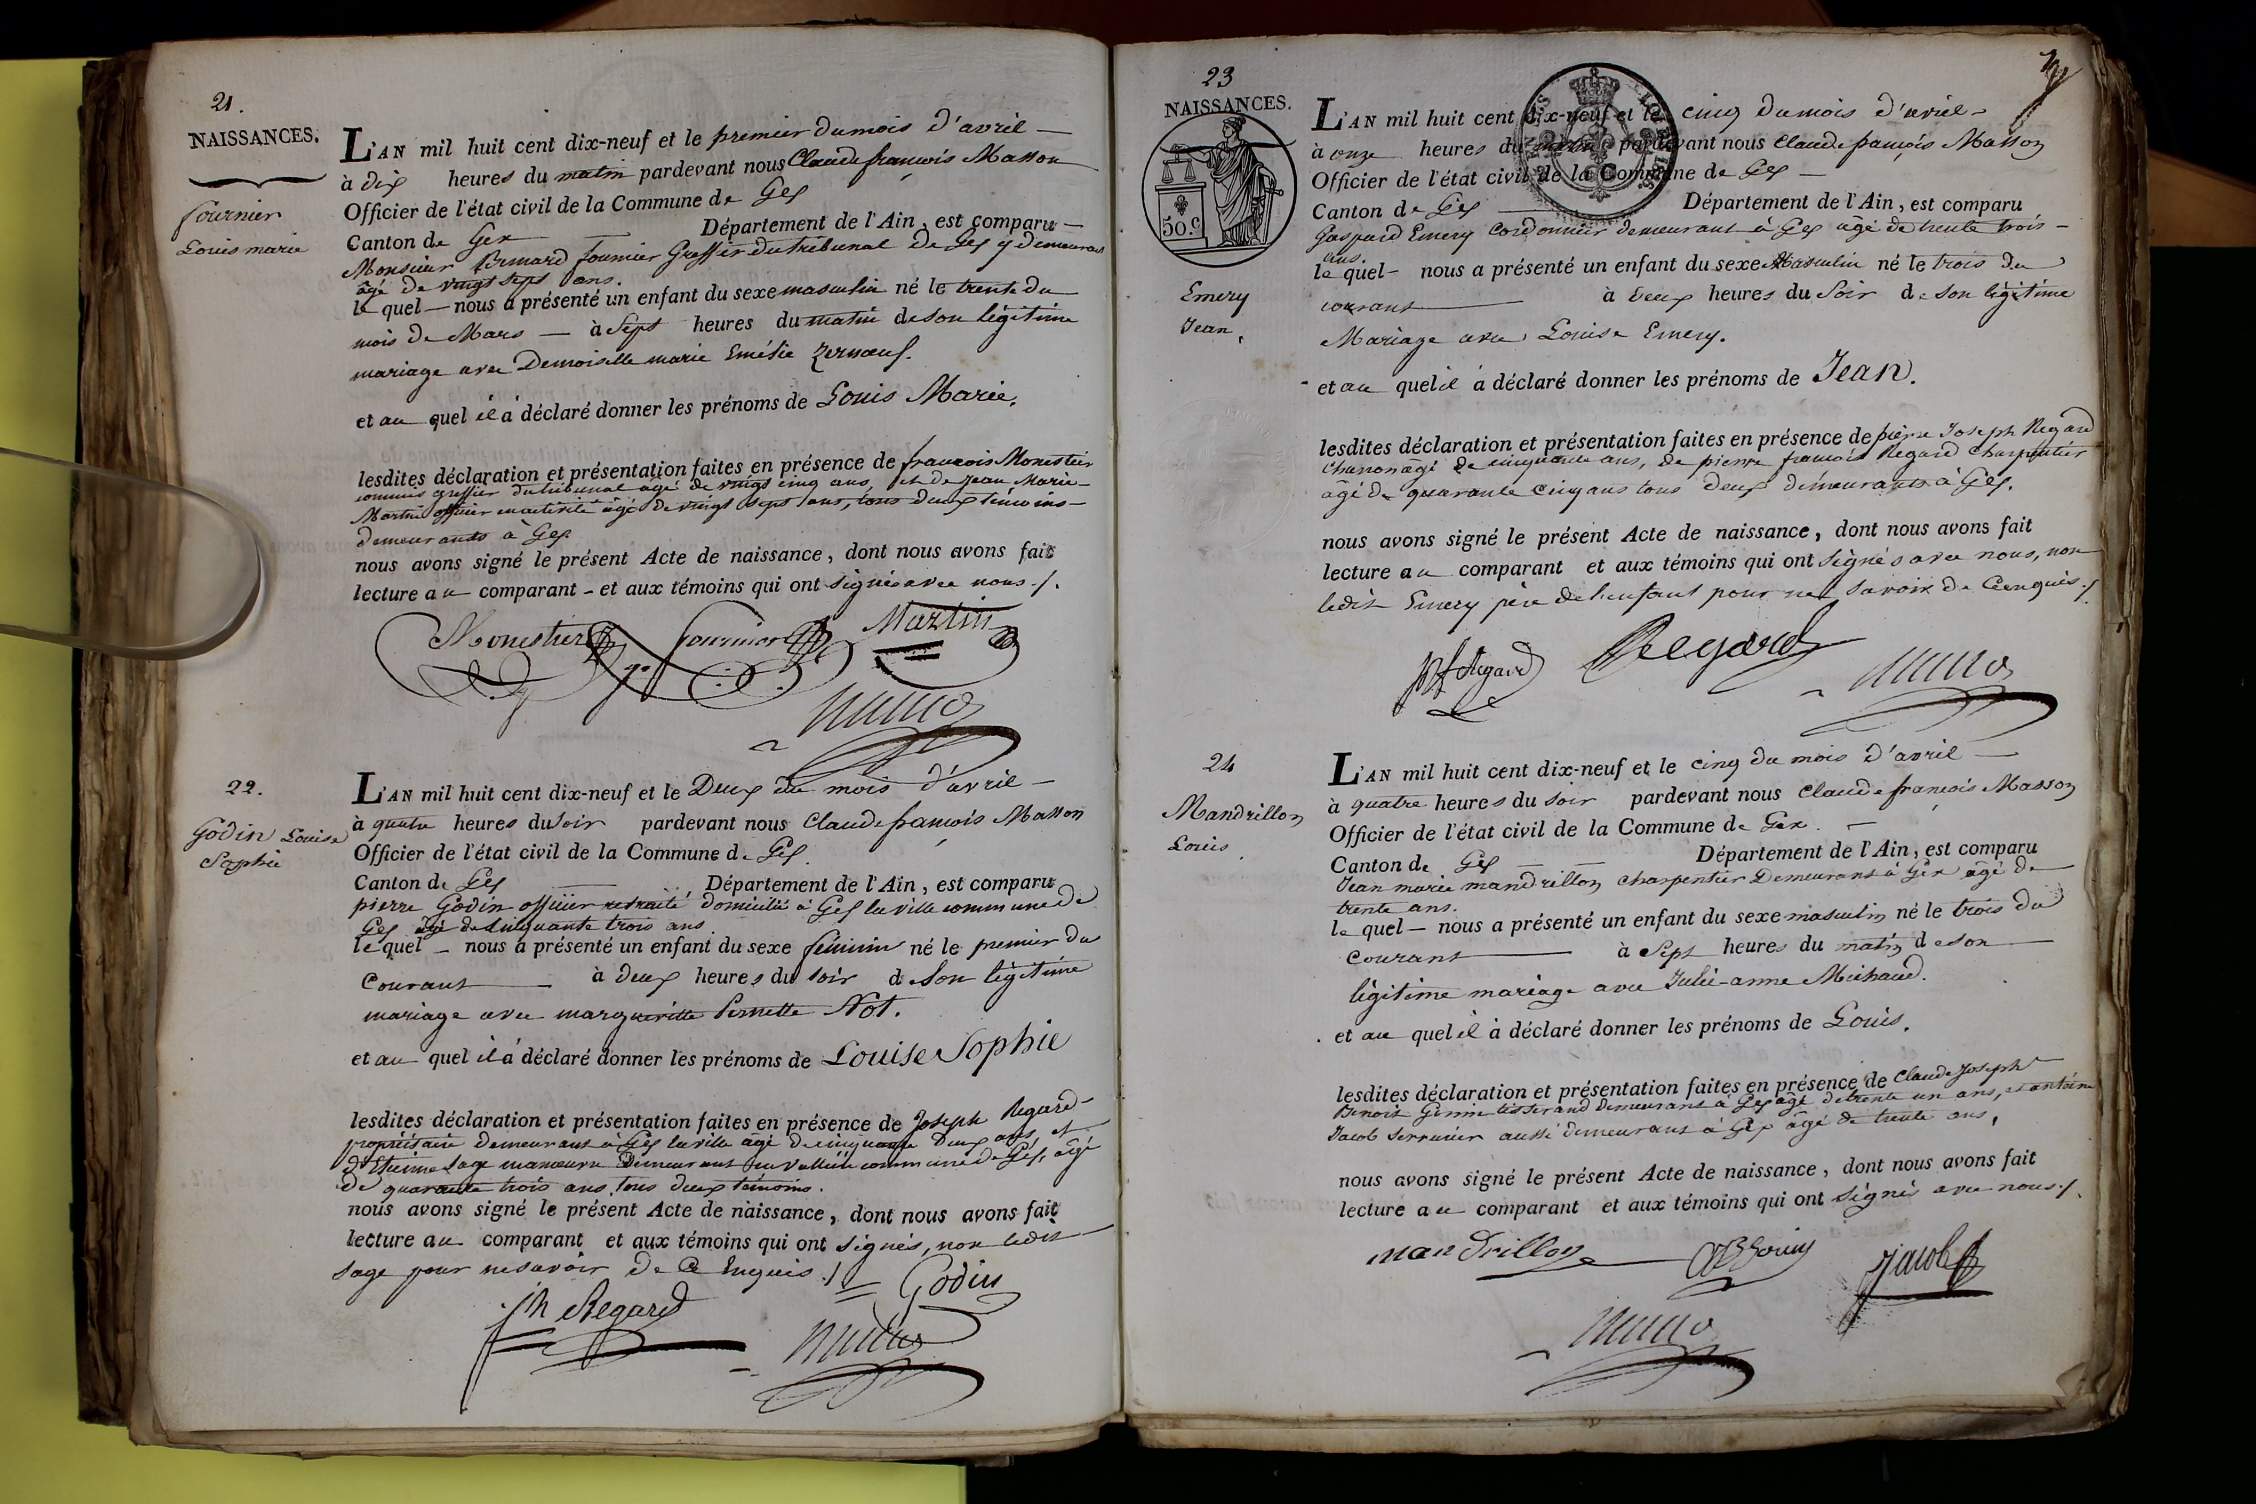 21.
NAISSANCES.
fournier
Louis marie
L'AN mil huit cent dix-neuf et le premier du mois d'avril —
à dix heures du matin pardevant nous Claude françois Masson
Officier de l'état civil de la Commune de Gex
Canton de Gex — Département de l'Ain, est comparu —
Monsieur Bernard fournier Greffier du tribunal de Gex y demeurant
âgé de vingt sept ans.
le quel — nous a présenté un enfant du sexe masculin né le trente du
mois de Mars — à Sept heures du matin de son légitime
mariage avec Demoiselle marie Emélie
et au quel il a déclaré donner les prénoms de Louis Marie.
lesdites déclaration et présentation faites en présence de françois Monestier
commis greffier du tribunal âgé de vingt cinq ans, et de Jean Marie
Martin officier âgé de vingt sept ans, tous deux témoins —
demeurants à Gex
nous avons signé le présent Acte de naissance, dont nous avons fait
lecture au comparant — et aux témoins qui ont signés avec nous ./.
Monestier fournier Martin
22.
Godin Louise
Sophie
L'AN mil huit cent dix-neuf et le Deux du mois d'avril —
à quatre heures du soir pardevant nous Claude françois Masson
Officier de l'état civil de la Commune de Gex.
Canton de Gex — Département de l'Ain, est comparu
pierre Godin officier retraité domicilié à Gex la ville commune de
Gex âgé de cinquante trois ans
le quel — nous a présenté un enfant du sexe féminin né le premier du
Courant — à deux heures du soir de Son légitime
mariage avec margueritte Pernette Not.
et au quel il a déclaré donner les prénoms de Louise Sophie
lesdites déclaration et présentation faites en présence de Joseph Regard —
propriétaire demeurant à Gex la ville âgé de cinquante Deux ans, et
d'Etienne Sage manœuvre Demeurant commune de Gex, âgé
de quarante trois ans, tous deux témoins.
nous avons signé le présent Acte de naissance, dont nous avons fait
lecture au comparant et aux témoins qui ont signés, non ledit
Sage pour ne savoir de Ce Enquis ./.
Godin
jh Regard
23
NAISSANCES.
50. C
Emery
Jean.
L'AN mil huit cent dix-neuf et le cinq du mois d'avril —
à onze heures du pardevant nous Claude françois Masson
Officier de l'état civil de la Commune de Gex —
Canton de Gex — Département de l'Ain, est comparu
Gaspard Emery Cordonnier demeurant à Gex âgé de trente trois —
ans.
le quel — nous a présenté un enfant du sexe Masculin né le trois du
courant — à Deux heures du Soir de son légitime
Mariage avec Louise Emery.
et au quel il a déclaré donner les prénoms de Jean.
lesdites déclaration et présentation faites en présence de pierre Joseph Regard
Charron âgé de cinquante ans, de pierre françois Regard Charpentier
âgé de quarante cinq ans tous deux demeurants à Gex.
nous avons signé le présent Acte de naissance, dont nous avons fait
lecture au comparant et aux témoins qui ont signés avec nous, non
ledit Emery père de l'enfant pour ne savoir de Ce enquis ./.
Regard
24
Mandrillon
Louis.
L'AN mil huit cent dix-neuf et le cinq du mois d'avril —
à quatre heures du soir pardevant nous Claude françois Masson
Officier de l'état civil de la Commune de Gex. —
Canton de Gex — Département de l'Ain, est comparu
Jean marie mandrillon charpentier Demeurant à Gex âgé de
trente ans.
le quel — nous a présenté un enfant du sexe masculin né le trois du
courant — à Sept heures du matin de son —
légitime mariage avec Julie-anne Michaud.
et au quel il à déclaré donner les prénoms de Louis.
lesdites déclaration et présentation faites en présence de Claude Joseph
Benoit tisserand demeurant à Gex âgé de trente un ans, et antoine
Jacob Serrurier aussi demeurant à Gex âgé de trente ans.
nous avons signé le présent Acte de naissance, dont nous avons fait
lecture au comparant et aux témoins qui ont Signés avec nous ./.
mandrillon
jacob